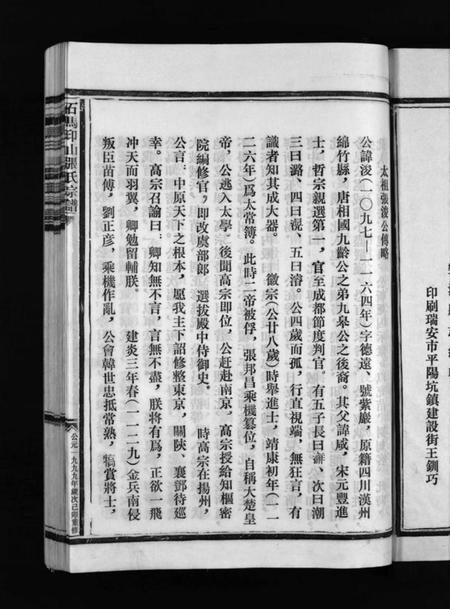 印刷瑞安市平陽坑鎮建設街王釧巧
太祖張浚公傳略
公諱浚(一〇九七—一一六四年)字德遠、號紫巖,原籍四川漢州
綿竹縣,唐相國九齡公之弟九皋公之後裔。其父諱咸,宋元豐進
士,哲宗親選第一,官至成都節度判官。有五子長曰滂、次曰潮
三曰潞、四曰滉、五曰濬。公四歲而孤,行直視端,無狂言,有
識者知其成大器。 徽宗(公廿八歲)時舉進士,靖康初年(一一
二六年)爲太常簿。此時二帝被俘,張邦昌乘機篡位,自稱大楚皇
帝,公逃入太學。後聞高宗即位,公赶赴南京。高宗授給知樞密
院編修官,即改虞部郎 選拔殿中侍御史。 時高宗在揚州,
公言,中原天下之根本,愿我主下詔修整東京,關陝、襄鄧待巡
幸。高宗召諭曰,卿知無不言,言無不盡,朕將有爲,正欲一飛
冲天而羽翼,卿勉留輔朕。 建炎三年春(一一二九)金兵南侵
叛臣苗傅,劉正彦,乘機作亂,公會韓世忠抵常熟,犒賞將士,
石馬印山張氏宗譜
公元一九九九年歲次己卯重修